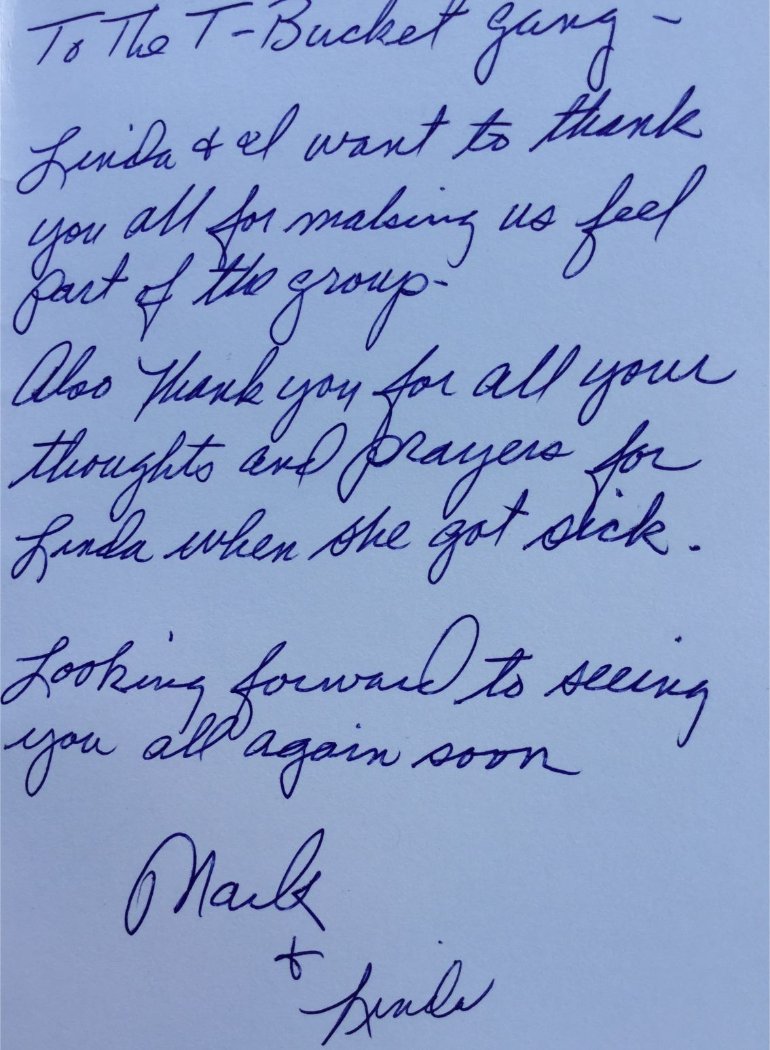 To The T-Bucket gang -
Linda & I want to thank
you all for making us feel
part of the group-
Also Thank you for all your
thoughts and prayers for
Linda when she got sick.
Looking forward to seeing
you all again soon
Mark
&
Linda